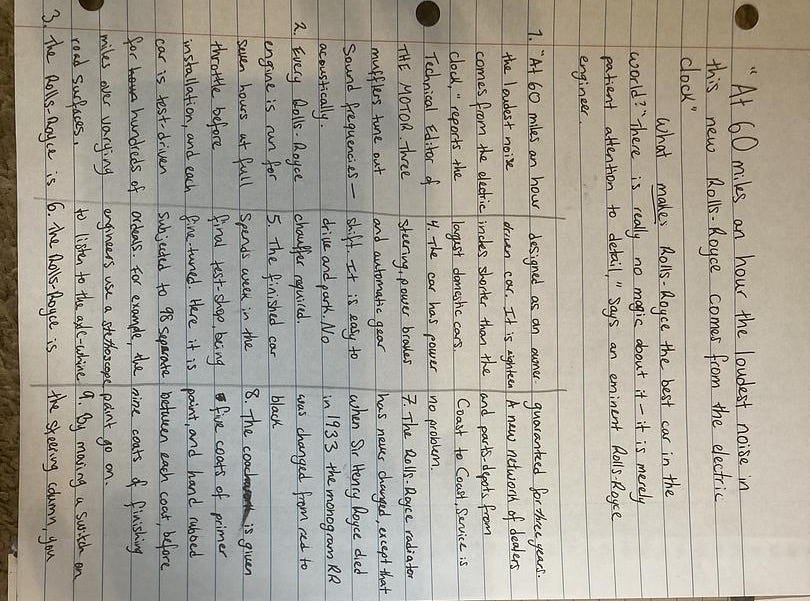 "At 60 miles an hour the loudest noise in
this new Rolls-Royce comes from the electric
clock"
What makes Rolls-Royce the best car in the
world? "There is really no magic about it - it is merely
patient attention to detail," Says an eminent Rolls-Royce
engineer.
1. "At 60 miles an hour
the loudest noise
comes from the electric
clock," reports the
Technical Editor of
THE MOTOR. Three
mufflers tune out
Sound frequencies —
acoustically.
2. Every Rolls-Royce
engine is run for
seven hours at full
throttle before
installation, and each
car is test-driven
for hundreds of
miles over varying
road surfaces.
3. The Rolls-Royce is
designed as an owner-
driven car. It is eighteen
inches shorter than the
largest domestic cars.
4. The car has power
steering, power brakes
and automatic gear
shift. It is easy to
drive and park. No
chauffer required.
5. The finished car
Spends week in the
final test-shop, being
fine-tuned. Here it is
subjected to 98 separate
ordeals. For example, the
engineers use a stethoscope
to listen to the axle-whine
6. The Rolls-Royce is
guaranteed for three years.
A new network of dealers
and parts-depots from
Coast to Coast, Service is
no problem.
7. The Rolls-Royce radiator
has never changed, except that
when Sir Henry Royce died
in 1933 the monogram RR
was changed from red to
black
8. The coachwork is given
five coats of primer
paint, and hand rubbed
between each coat, before
nine coats of finishing
paint go on.
9. By moving a switch on
the steering column, you